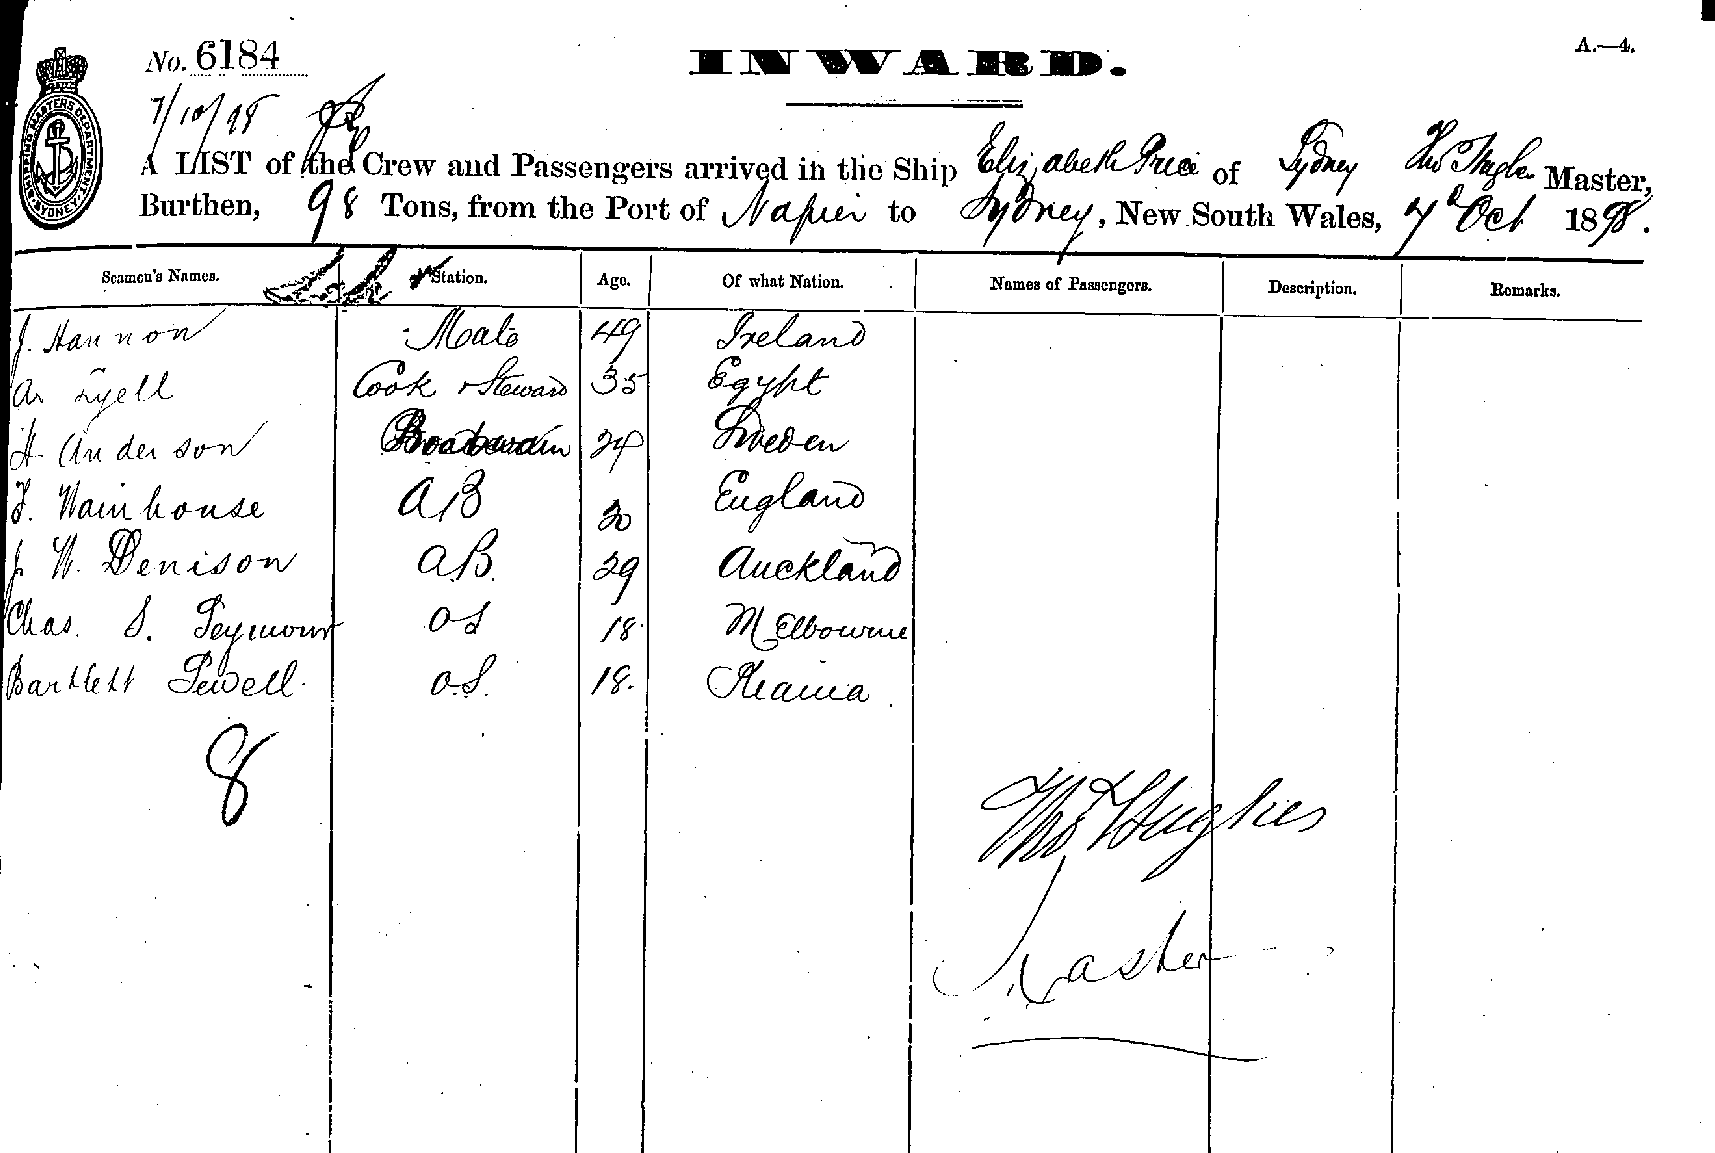 No. 6184
INWARD.
A.—4.
7/10/98
SHIPPING MASTERS DEPARTMENT SYDNEY
A LIST of the Crew and Passengers arrived in the Ship Elizabeth Price of Sydney Thos Hughes Master,
Burthen, 98 Tons, from the Port of Napier to Sydney, New South Wales, 7th Oct 1898.
Seamen's Names. Station. Age. Of what Nation. Names of Passengers. Description. Remarks.
J. Hannon Mate 49 Ireland
A Lyell Cook & Steward 35 Egypt
H Anderson 24 Sweden
F. Wainhouse AB 20 England
J. W. Denison AB. 29 Auckland
Chas. S. Seymour OS 18. Melbourne
Bartlett Sewell. O.S. 18. Kiama
8
Thos Hughes
Master